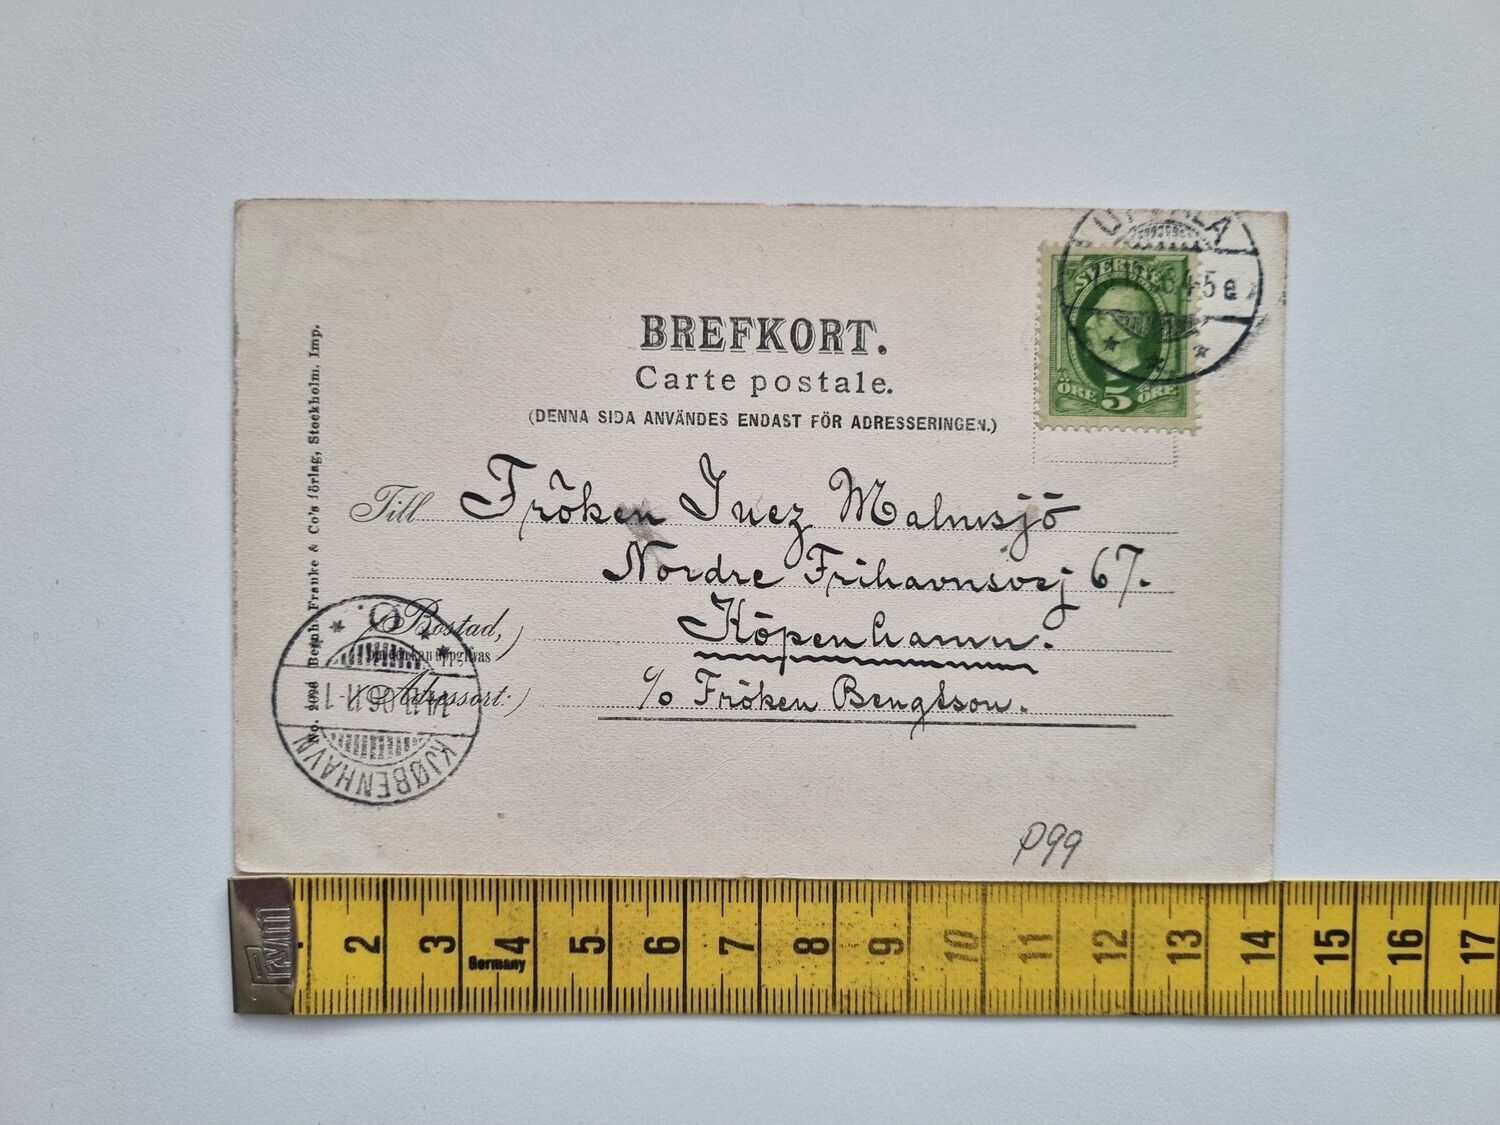 BREFKORT.
Carte postale.
(DENNA SIDA ANVÄNDES ENDAST FÖR ADRESSERINGEN.)
UPSALA
45 e
SVERIGE
ÖRE 5 ÖRE
Till Fröken Inez Malmsjö
Nordre Frihavnsvej 67.
Bostad,
Köpenhamn.
Adressort:
c/o Fröken Bengtson.
No. Bengh. Franke & Co's förlag, Stockholm. Imp.
KJØBENHAVN
P99
Prym
2 3 4 5 6 7 8 9 10 11 12 13 14 15 16 17
Germany